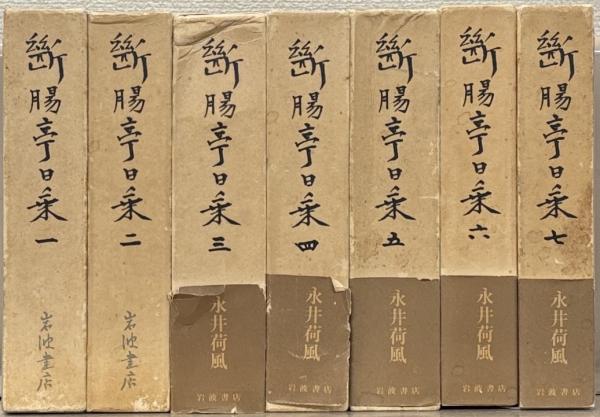 斷腸亭日乗 一
岩波書店
斷腸亭日乗 二
岩波書店
斷腸亭日乗 三
永井荷風
斷腸亭日乗 四
永井荷風
岩波書店
斷腸亭日乗 五
永井荷風
岩波書店
斷腸亭日乗 六
永井荷風
岩波書店
斷腸亭日乗 七
永井荷風
岩波書店
岩波書店